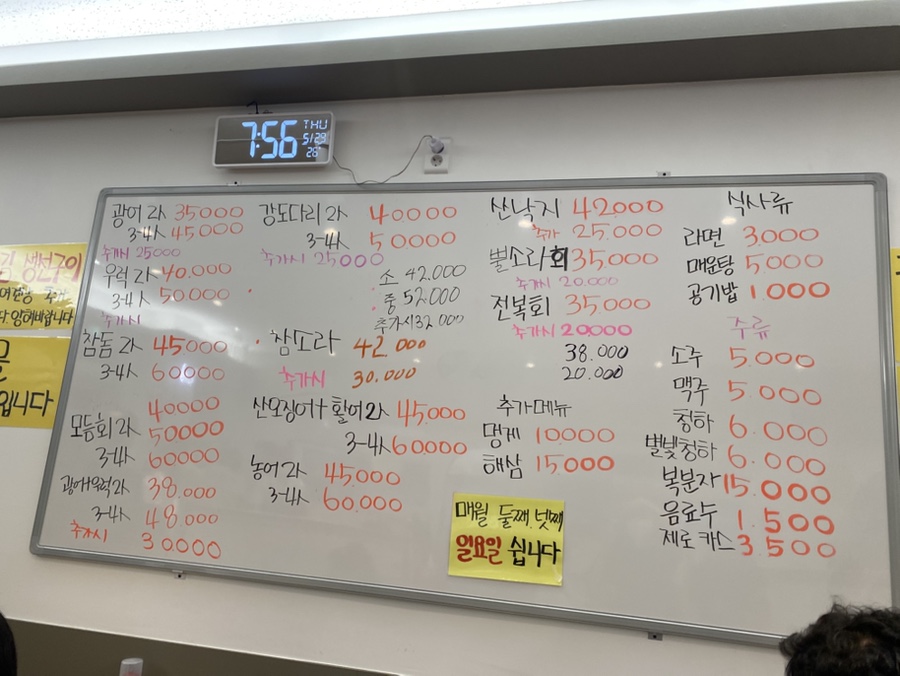 7:56 THU
5/29
26°
광어 2人 35000
3-4人 45000
추가시 25000
우럭 2人 40.000
3-4人 50000
추가시
참돔 2人 45000
3-4人 60000
40000
모듬회 2人 50000
3-4人 60000
광어+우럭 2人 38.000
3-4人 48000
추가시 30000
강도다리 2人 40000
3-4人 50000
추가시 25000
소 42.000
중 52.000
추가시 32000
참소라 42000
추가시 30.000
산오징어+활어 2人 45.000
3-4人 60000
농어 2人 45000
3-4人 60.000
산낙지 42000
추가 25000
뿔소라회 35000
추가시 20.000
전복회 35000
추가시 20000
38.000
20.000
추가메뉴
멍게 10000
해삼 15000
매월 둘째, 넷째
일요일 쉽니다
식사류
라면 3.000
매운탕 5000
공기밥 1.000
주류
소주 5.000
맥주 5.000
청하 6.000
별빛청하 6.000
복분자 15.000
음료수 1.500
제로카스 3.500
생선구이
니다